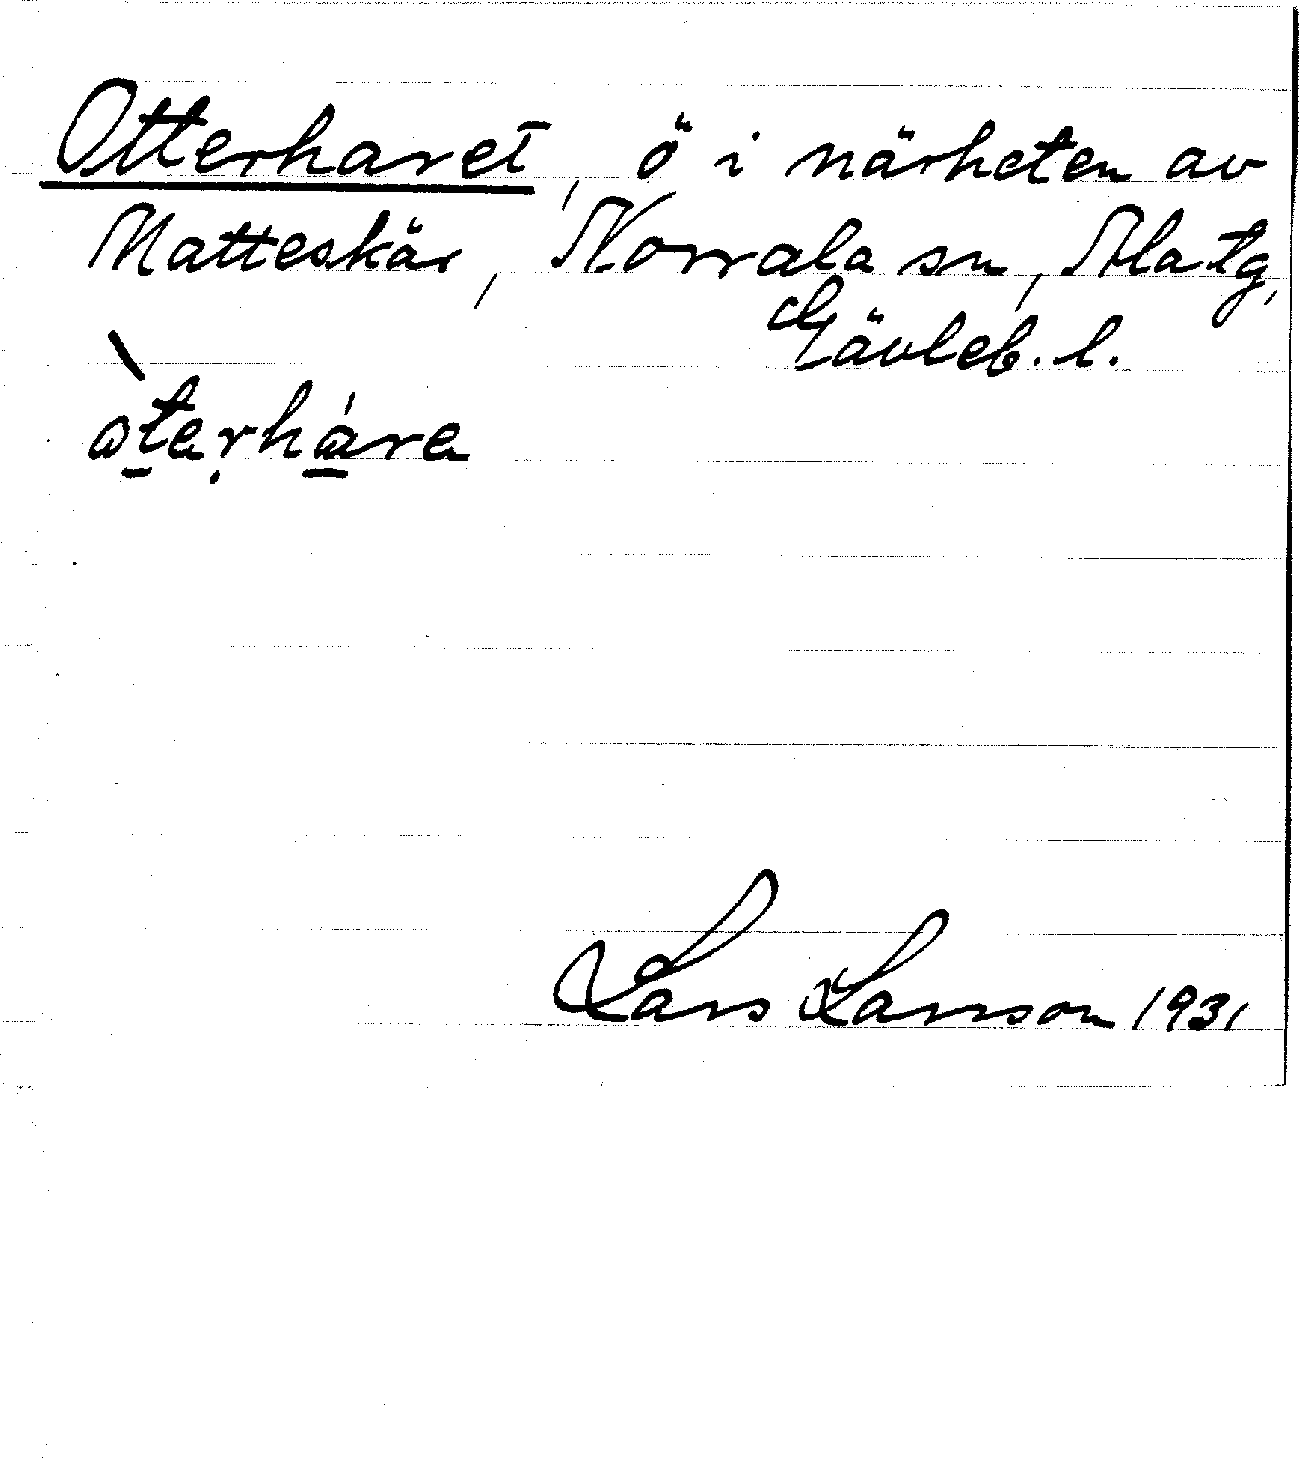 Otterharet, ö i närheten av
Matteskär, Norrala sn, Ala tg,
Gävleb. l.
ɷ̀terhare
Lars Larsson 1931